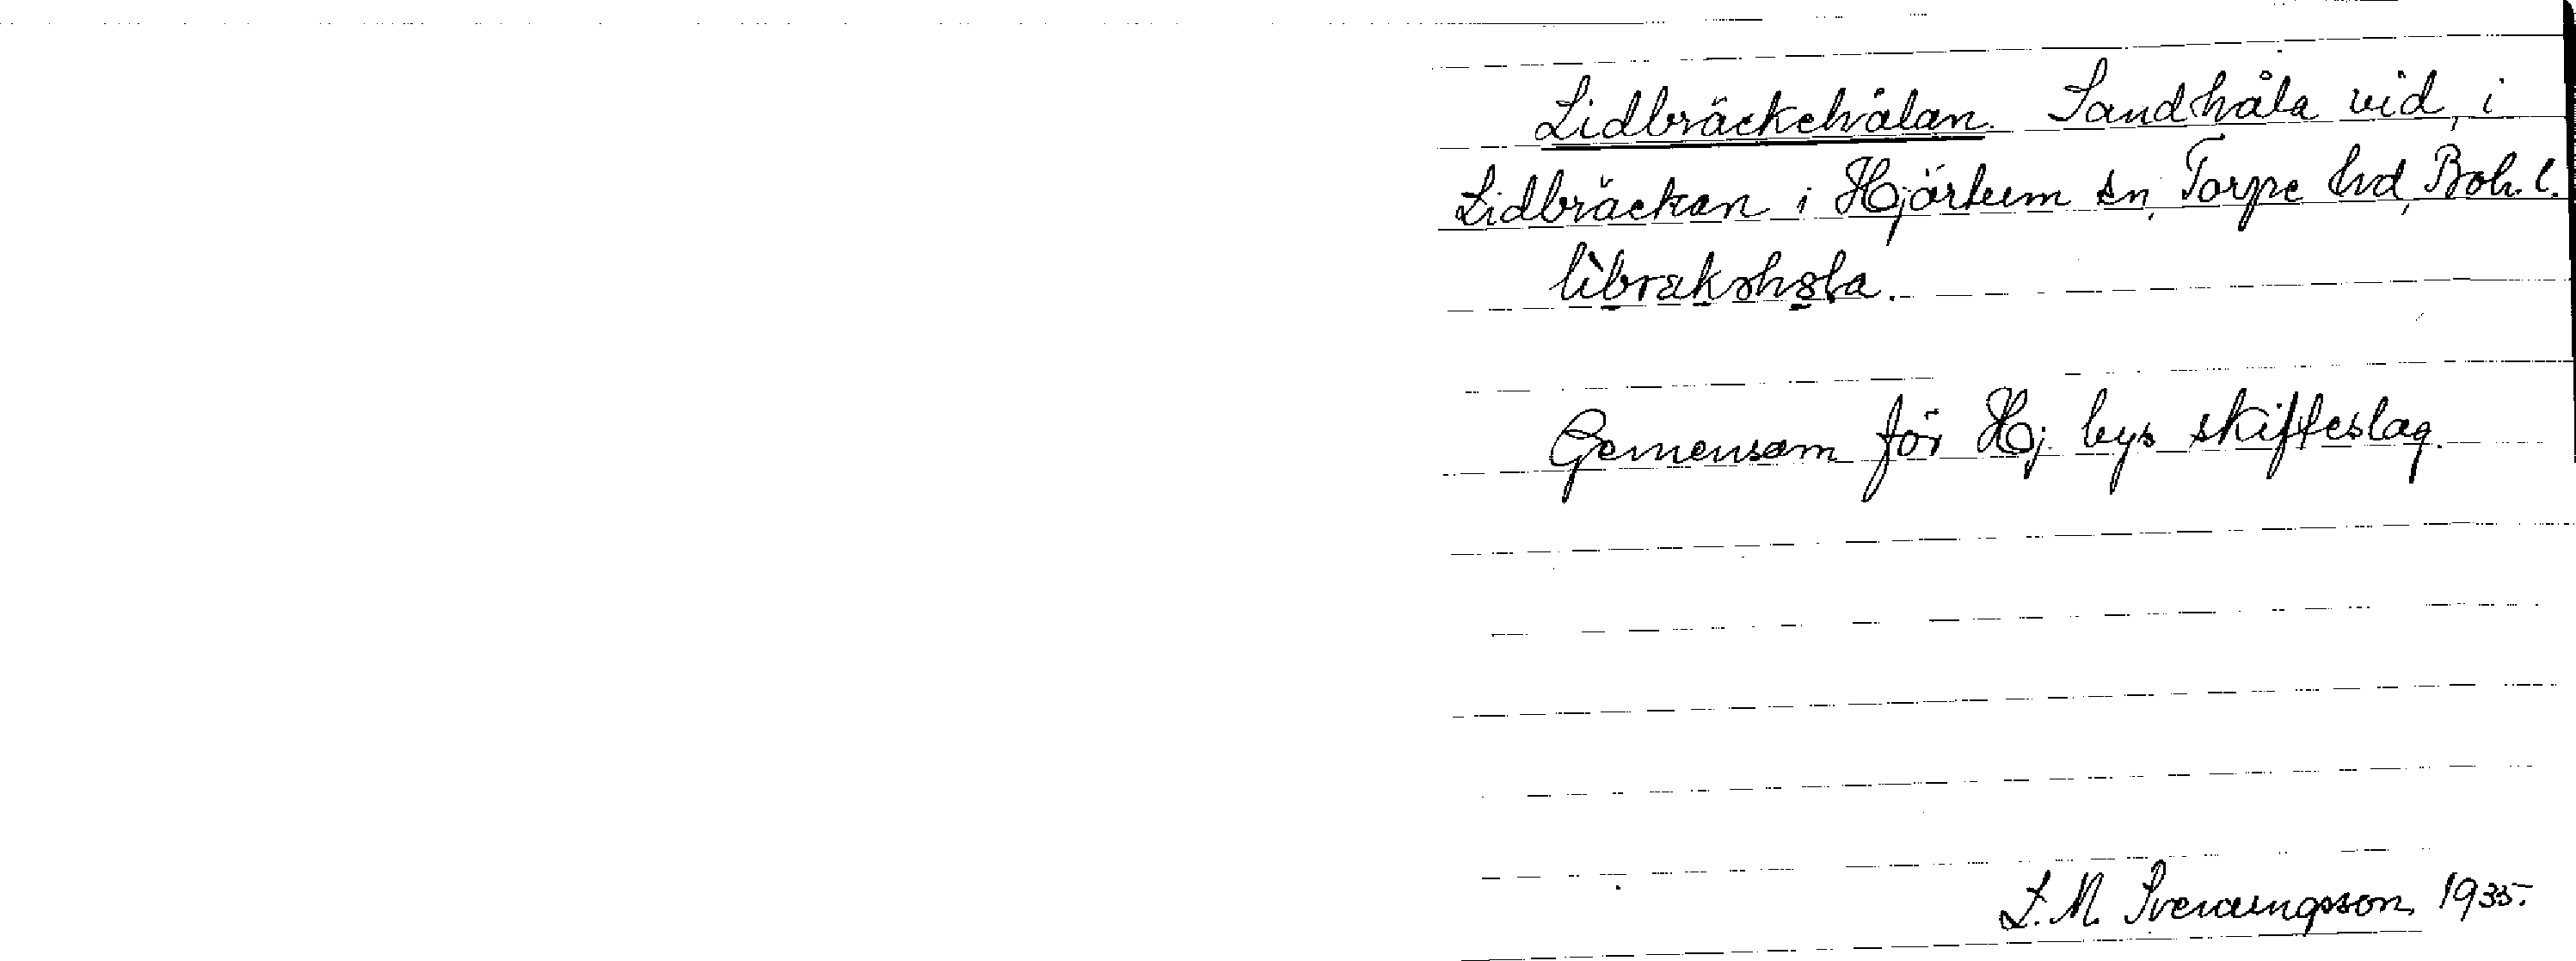 Lidbräckehålan. Sandhåla vid, i
Lidbräckan i Hjärtum sn, Torpe hd, Boh. l.
Gemensam för Hj. bys skifteslag.
S. M. 1935.